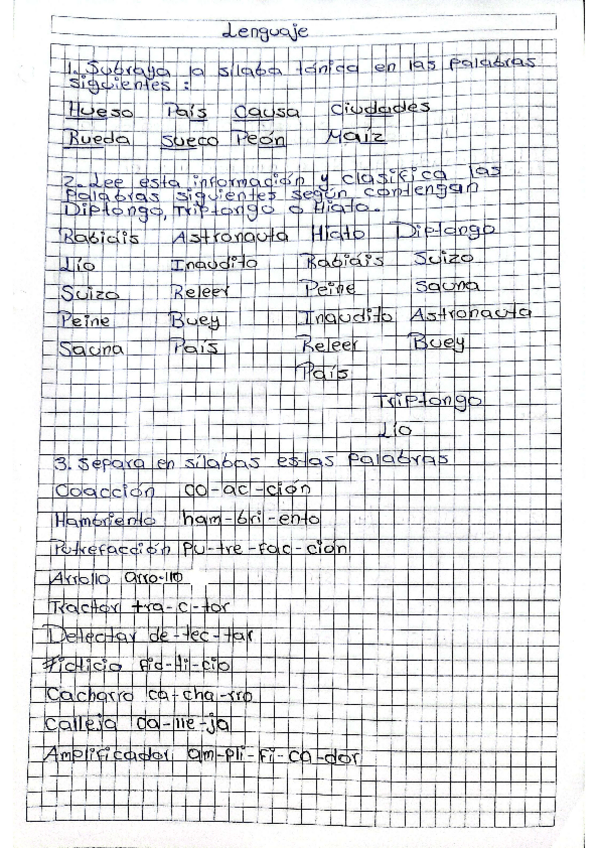 Lenguaje
1. Subraya la sílaba tónica en las palabras
siguientes :
Hueso País Causa Ciudades
Rueda Sueco Peón Maíz
2. Lee esta información y clasifica las
palabras siguientes según contengan
Diptongo, Triptongo o Hiato.
Rabiáis Astronauta Hiato Diptongo
Lío Inaudito Rabiáis Suizo
Suizo Releer Peine Sauna
Peine Buey Inaudito Astronauta
Sauna País Releer Buey
País
Triptongo
Lío
3. Separa en sílabas estas palabras
Coacción co-ac-ción
Hambriento ham-bri-ento
Putrefacción pu-tre-fac-ción
Arrollo arro-llo
Tractor tra-c-tor
Detectar de-tec-tar
Ficticio fic-ti-cio
Cacharro ca-cha-rro
Calleja ca-lle-ja
Amplificador am-pli-fi-ca-dor